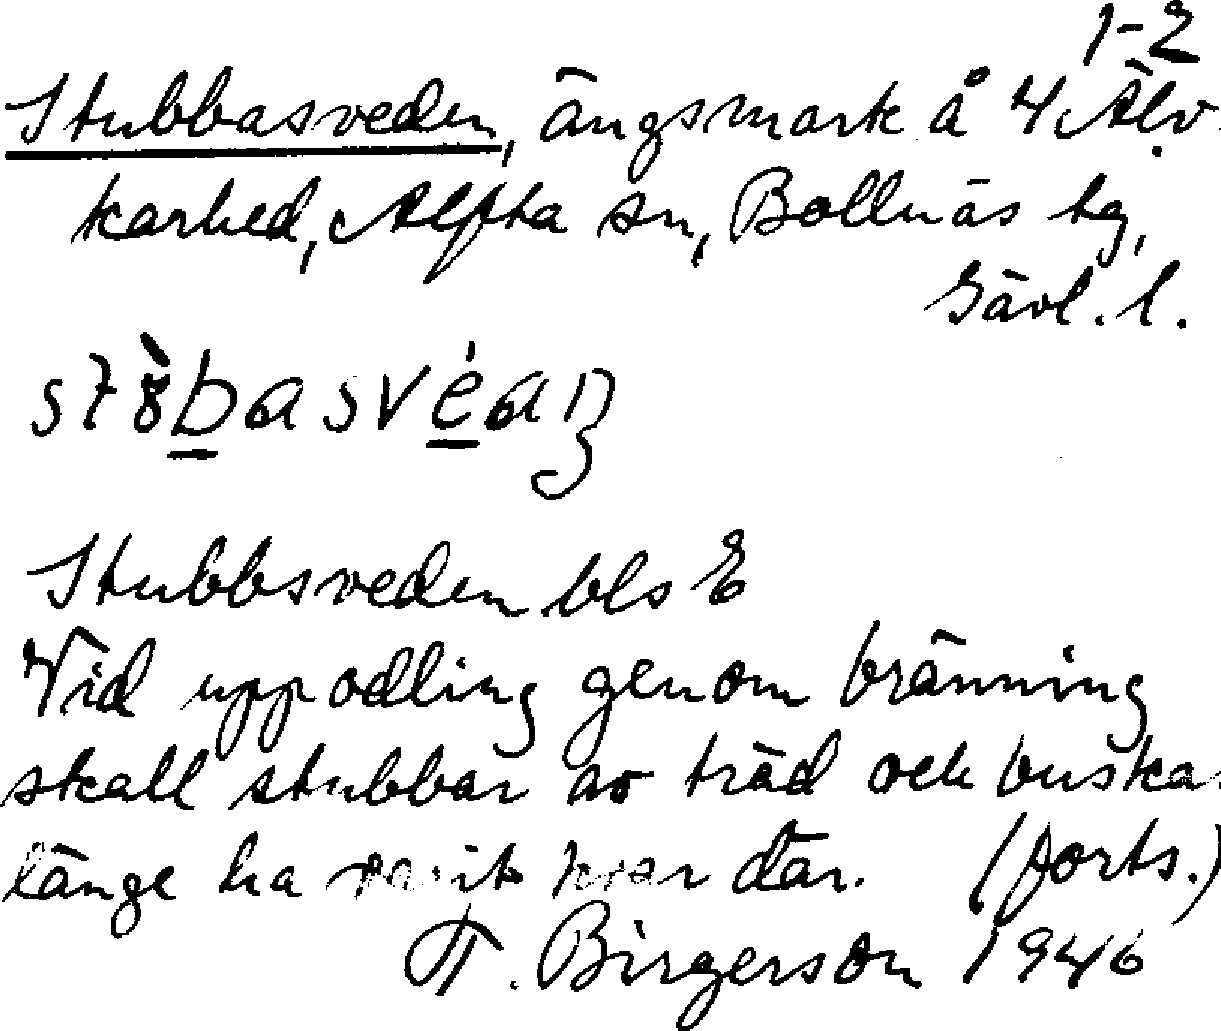 1-2
Stubbasveden, ängsmark å 4 Älv-
karhed, Alfta sn, Bollnäs tg,
Gävl. l.
Stubbsveden bls E
Vid uppodling genom bränning
skall stubbar av träd och buskar
länge ha varit kvar där. (forts.)
T. Birgerson 1946